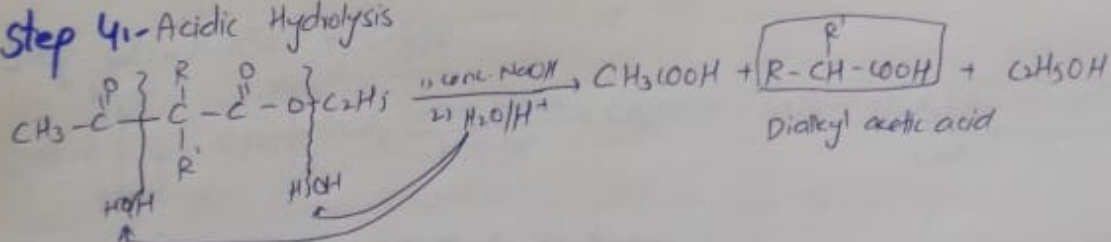 Step 4:- Acidic Hydrolysis
R'
O R O
CH3-C-C-C-O-C2H5 1) conc. NaOH CH3COOH + R-CH-COOH + C2H5OH
2) H2O/H+
R'
Dialkyl acetic acid
HO/H H/OH